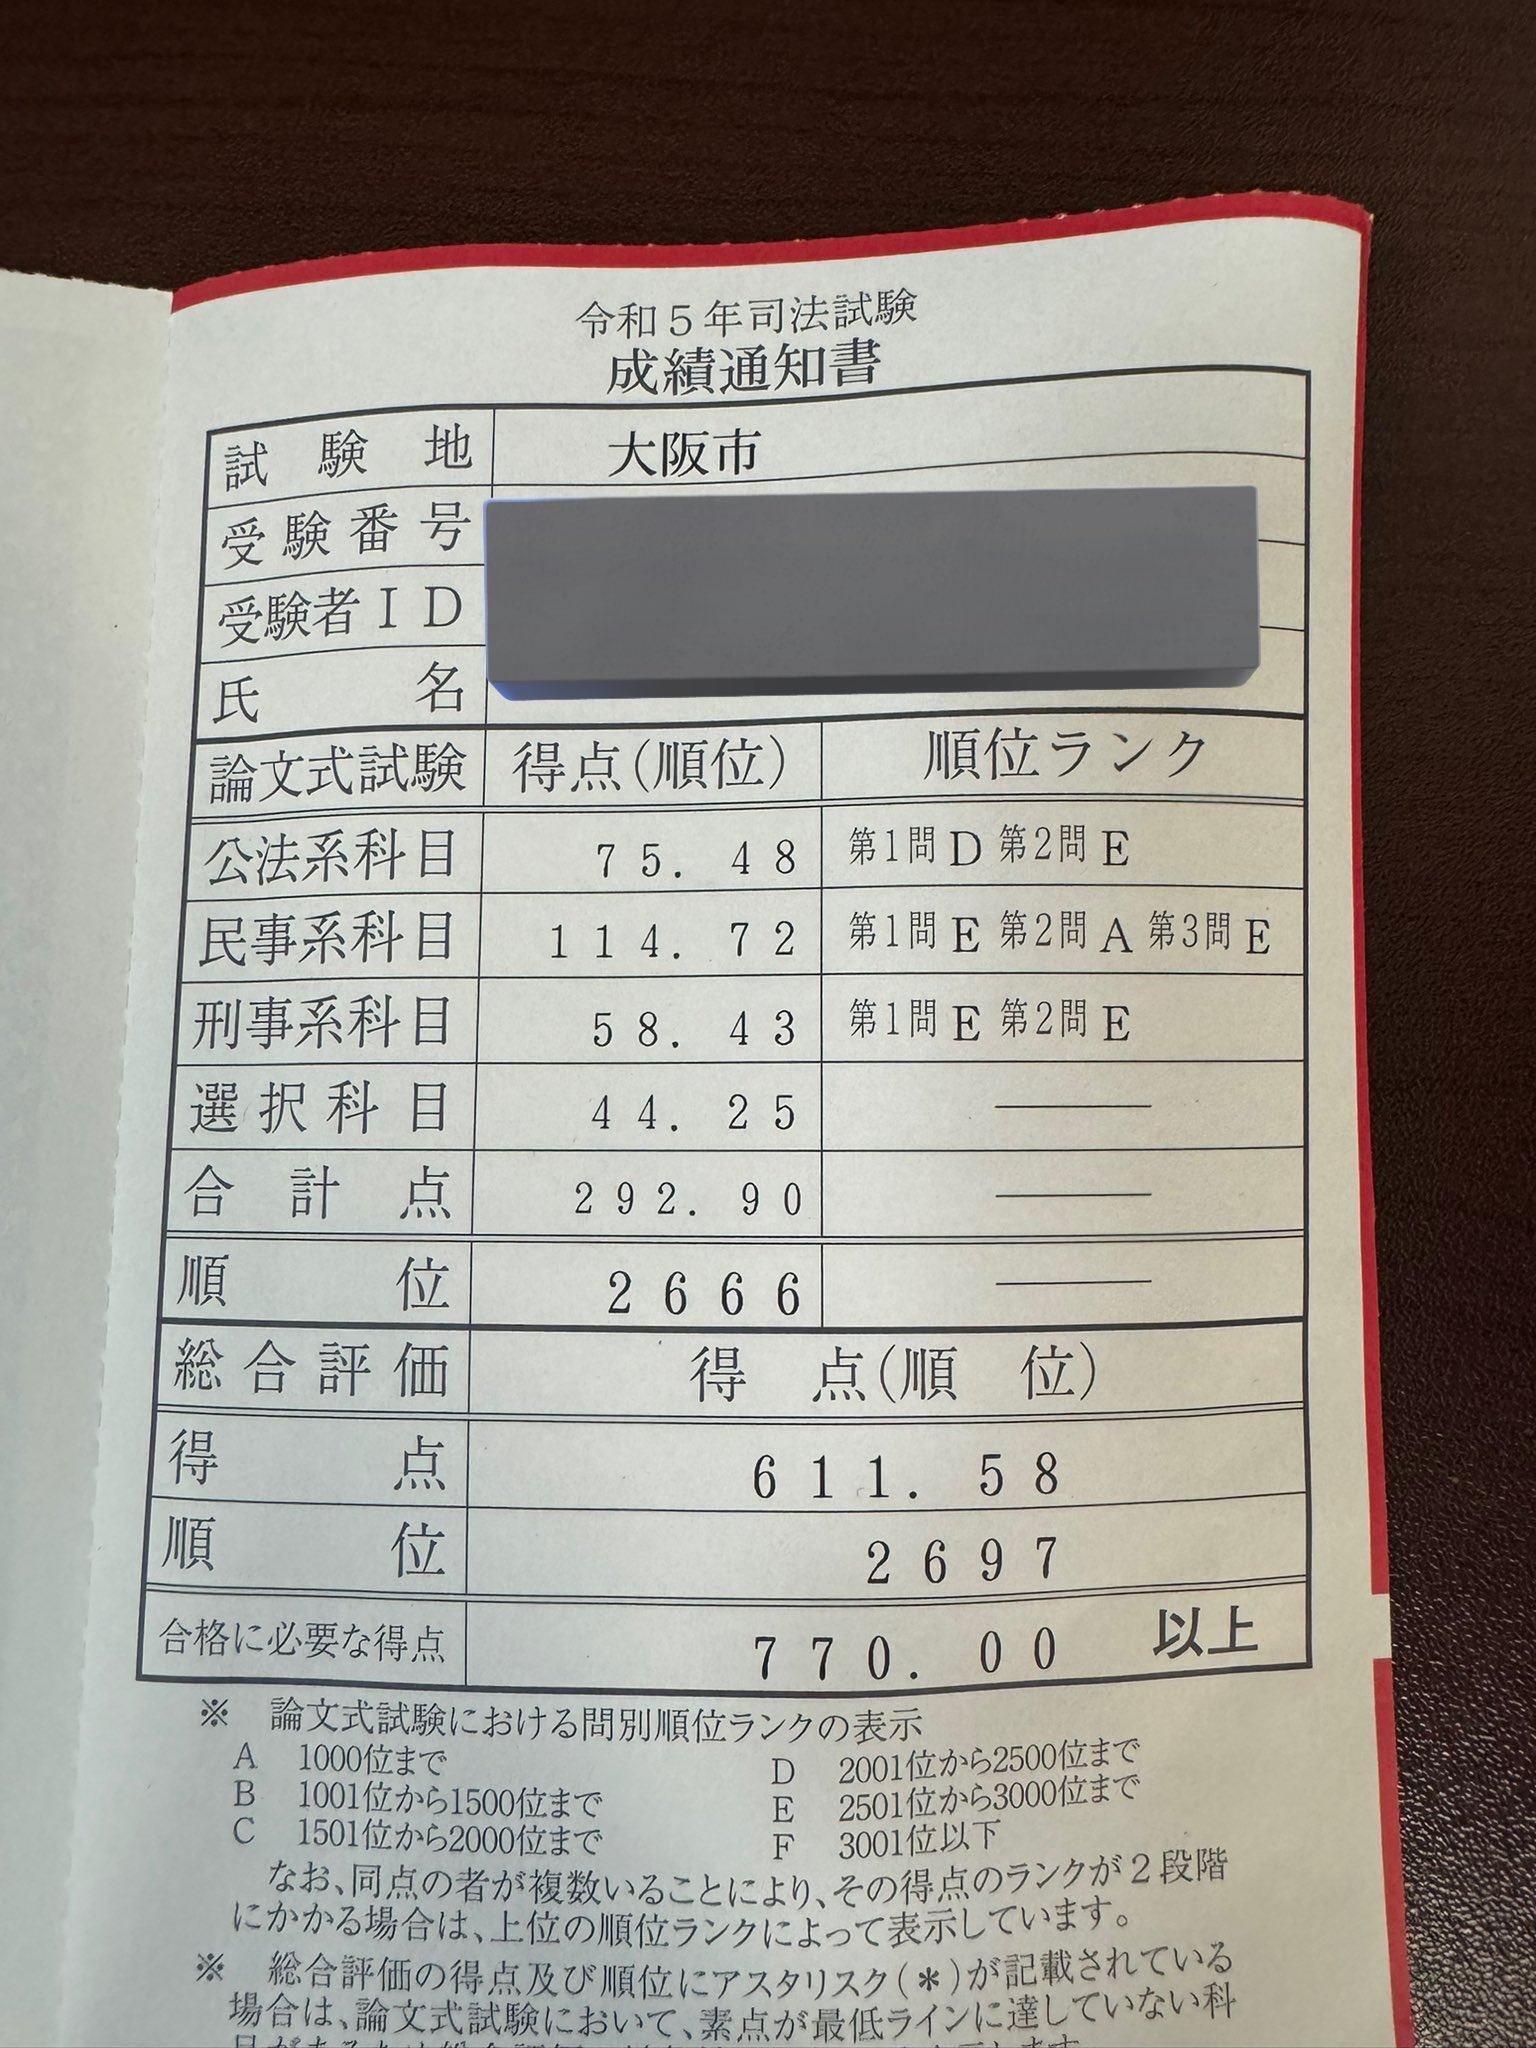 令和5年司法試験
成績通知書
試験地 大阪市
受験番号
受験者ID
氏名
論文式試験 得点(順位) 順位ランク
公法系科目 75.48 第1問 D 第2問 E
民事系科目 114.72 第1問 E 第2問 A 第3問 E
刑事系科目 58.43 第1問 E 第2問 E
選択科目 44.25 ―――
合計点 292.90 ―――
順位 2666 ―――
総合評価 得点(順位)
得点 611.58
順位 2697
合格に必要な得点 770.00 以上
※ 論文式試験における問別順位ランクの表示
A 1000位まで D 2001位から2500位まで
B 1001位から1500位まで E 2501位から3000位まで
C 1501位から2000位まで F 3001位以下
なお、同点の者が複数いることにより、その得点のランクが2段階
にかかる場合は、上位の順位ランクによって表示しています。
※ 総合評価の得点及び順位にアスタリスク(*)が記載されている
場合は、論文式試験において、素点が最低ラインに達していない科